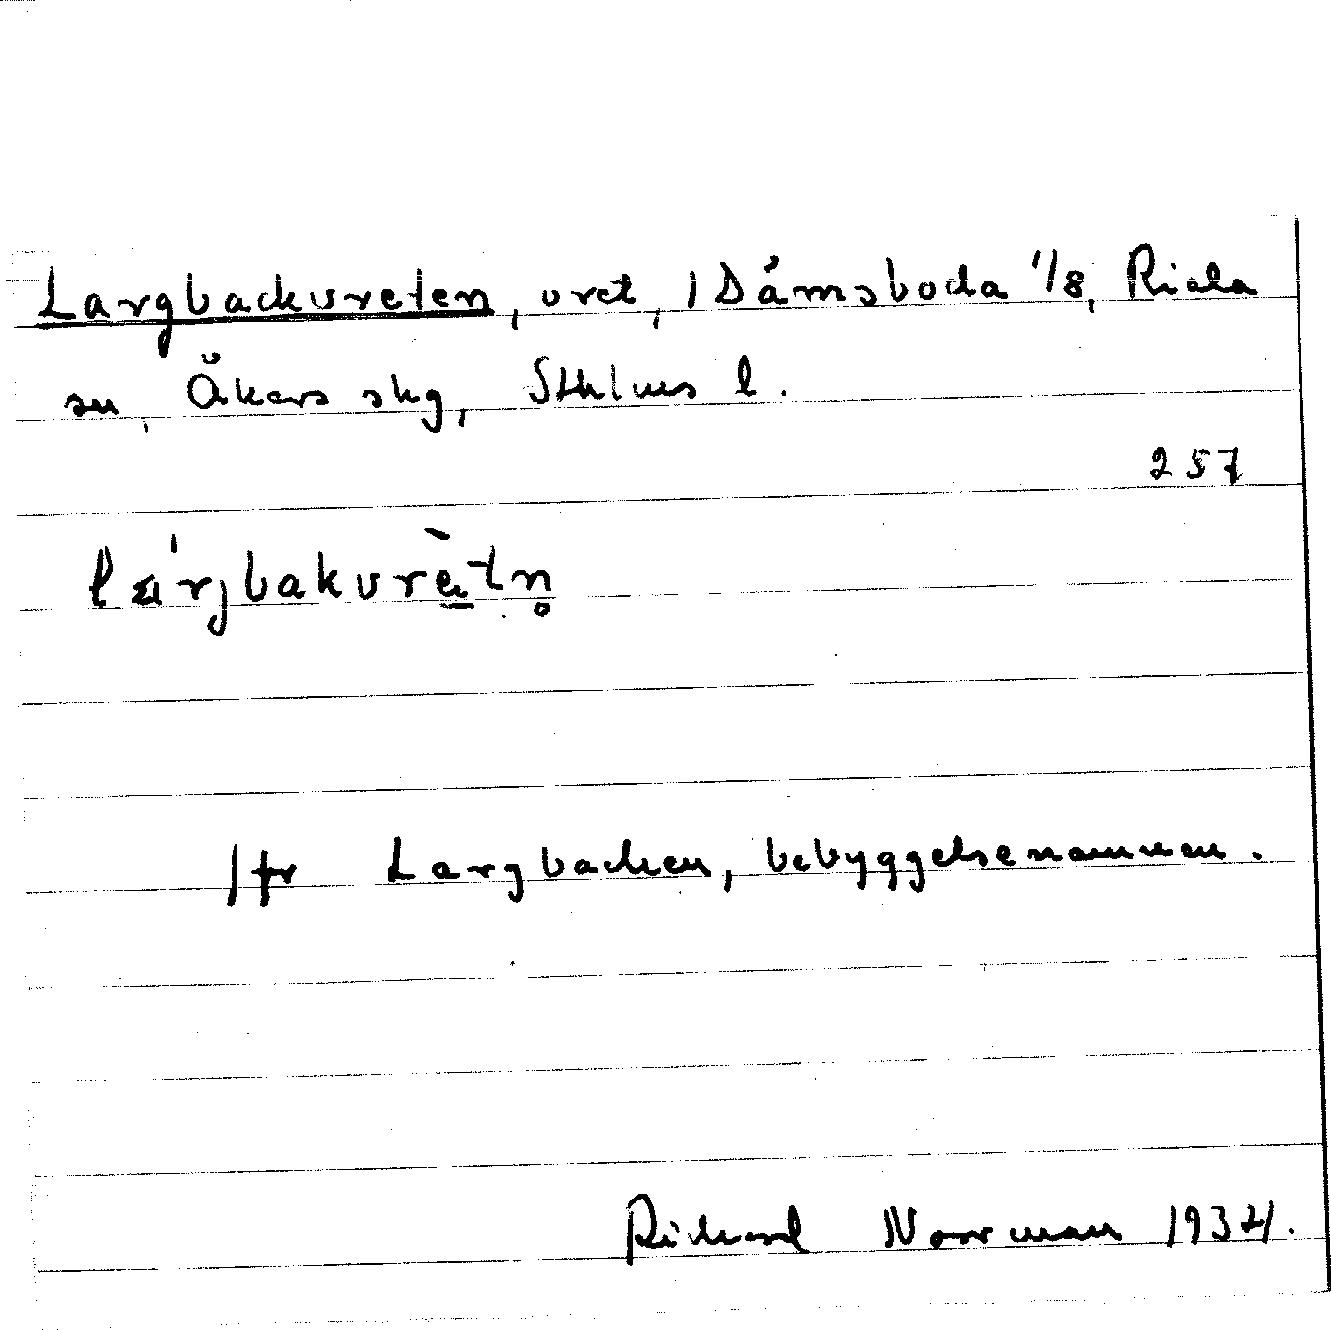 Largbackvreten, vret, i Dåmsboda 1/8, Riala
sn, Åkers skg, Sthlms l.
257
Jfr Largbacken, bebyggelsenamnen.
Richard Norrman 1934.